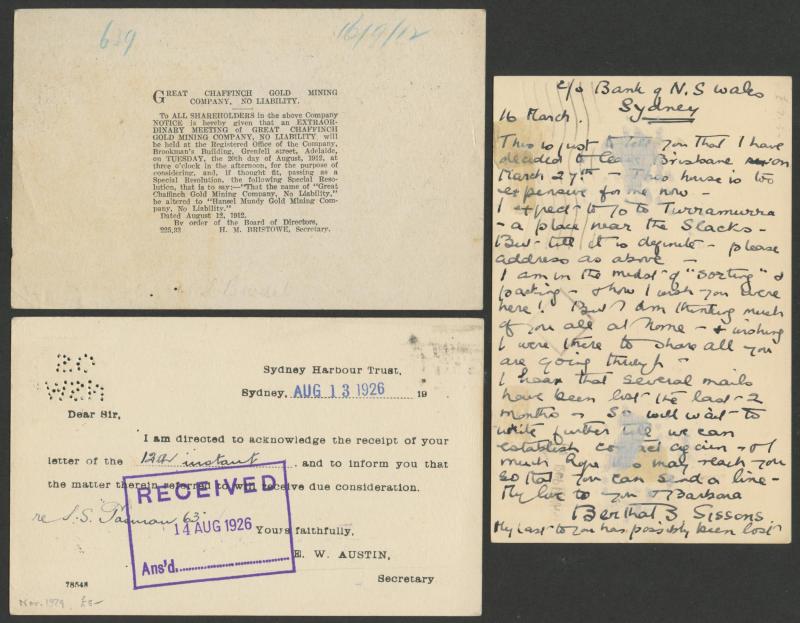 639
16/9/12
GREAT CHAFFINCH GOLD MINING
COMPANY, NO LIABILITY.
To ALL SHAREHOLDERS in the above Company
NOTICE is hereby given that an EXTRAOR-
DINARY MEETING of GREAT CHAFFINCH
GOLD MINING COMPANY, NO LIABILITY, will
be held at the Registered Office of the Company,
Brookman's Building, Grenfell street, Adelaide,
on TUESDAY, the 20th day of August, 1912, at
three o'clock in the afternoon, for the purpose of
considering, and, if thought fit, passing as a
Special Resolution, the following Special Reso-
lution, that is to say:—"That the name of "Great
Chaffinch Gold Mining Company, No Liability,"
be altered to "Hansel Mundy Gold Mining Com-
pany, No Liability."
Dated August 12, 1912.
By order of the Board of Directors,
225,33 H. M. BRISTOWE, Secretary.
Sydney Harbour Trust,
Sydney, AUG 13 1926 19
Dear Sir,
I am directed to acknowledge the receipt of your
letter of the 12th instant, and to inform you that
the matter therein referred to will receive due consideration.
RECEIVED
14 AUG 1926
Ans'd
re S.S. Tasman 63
Yours faithfully,
E. W. AUSTIN,
Secretary
78548
Nov. 1979 £5-
c/o Bank of N.S Wales
Sydney
16 March.
This is just to tell you that I have
decided to leave Brisbane on
March 27th - This house is too
expensive for me now -
I expect to go to Turramurra
- a place near the Slacks -
But till it is definite - please
address as above -
I am in the midst of "sorting" &
packing - & how I wish you were
here! But I am thinking much
of you all at home - & wishing
I were there to share all you
are going through -
I hear that several mails
have been lost the last 2
months - So will wait to
write further till we can
establish contact again - & I
much hope so may reach you
so that you can send a line -
My love to you & Barbara
Bertha B Sissons
My last to you has possibly been lost